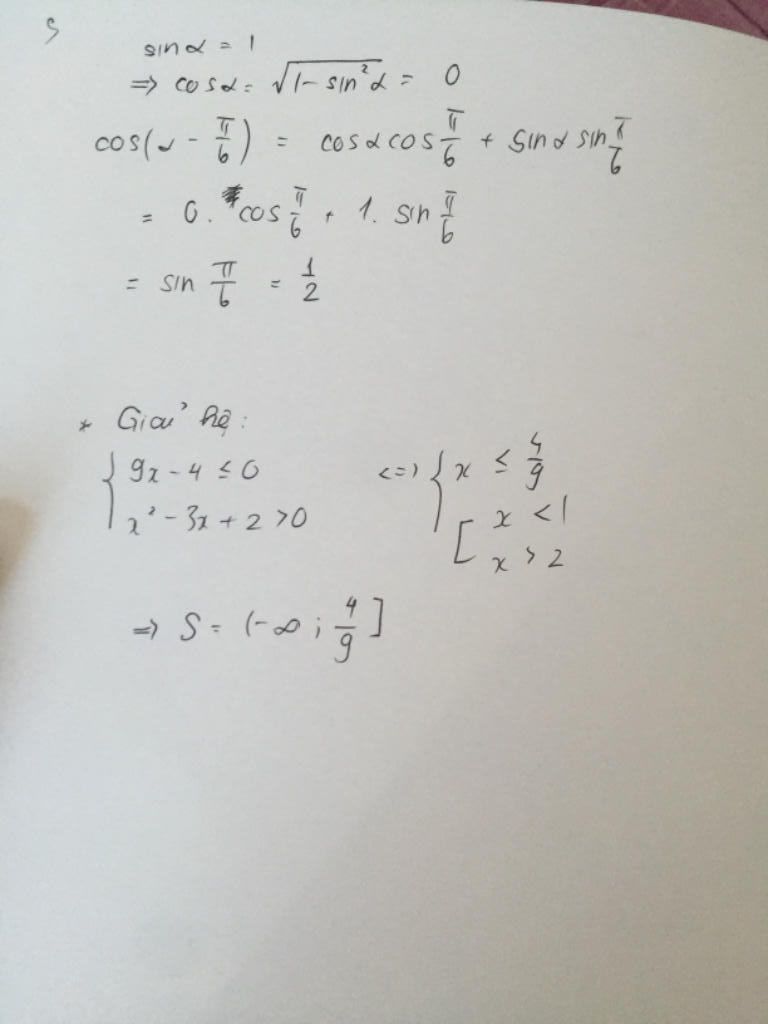 sinα = 1
⇒ cosα = √(1 - sin²α) = 0
cos(α - π/6) = cosα cos π/6 + sinα sin π/6
= 0. cos π/6 + 1. sin π/6
= sin π/6 = 1/2
* Giải hệ:
{ 9x - 4 ≤ 0 <=> { x ≤ 4/9
x² - 3x + 2 > 0 [ x < 1
x > 2
⇒ S = (-∞ ; 4/9]